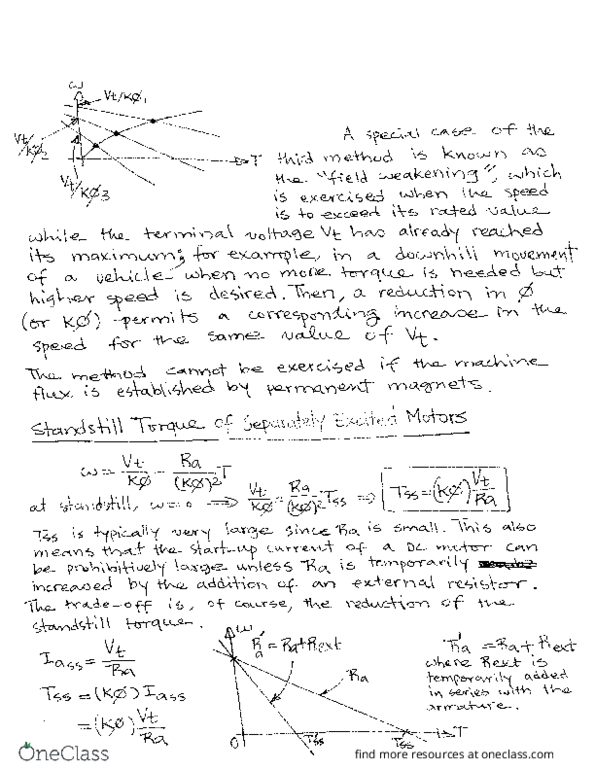 ω
Vt/KØ₁
Vt/
KØ₂
T
Vt/
KØ3
A special case of the
third method is known as
the "field weakening", which
is exercised when the speed
is to exceed its rated value
while the terminal voltage Vt has already reached
its maximum; for example, in a downhill movement
of a vehicle when no more torque is needed but
higher speed is desired. Then, a reduction in Ø
(or KØ) permits a corresponding increase in the
speed for the same value of Vt.
The method cannot be exercised if the machine
flux is established by permanent magnets.
Standstill Torque of Separately Excited Motors
ω = Vt/KØ - Ra/(KØ)² T
at standstill, ω=0 → Vt/KØ = Ra/(KØ)² Tss ⇒ Tss = (KØ) Vt/Ra
Tss is typically very large since Ra is small. This also
means that the start-up current of a DC motor can
be prohibitively large unless Ra is temporarily
increased by the addition of an external resistor.
The trade-off is, of course, the reduction of the
standstill torque.
Iass = Vt/Ra
Tss = (KØ) Iass
= (KØ) Vt/Ra
ω
R'a = Ra+Rext
Ra
0
T'ss
Tss
T
R'a = Ra + Rext
where Rext is
temporarily added
in series with the
armature.
OneClass
find more resources at oneclass.com